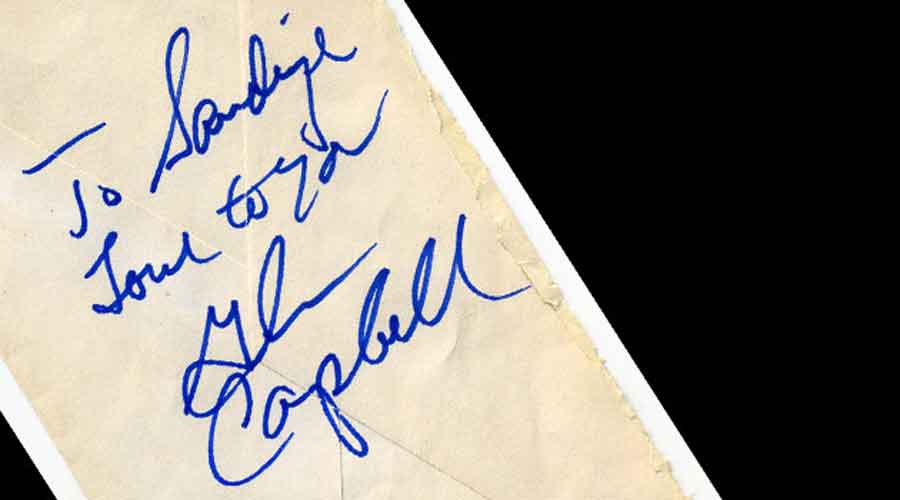 To Sandize
Love to ya
Glen
Campbell